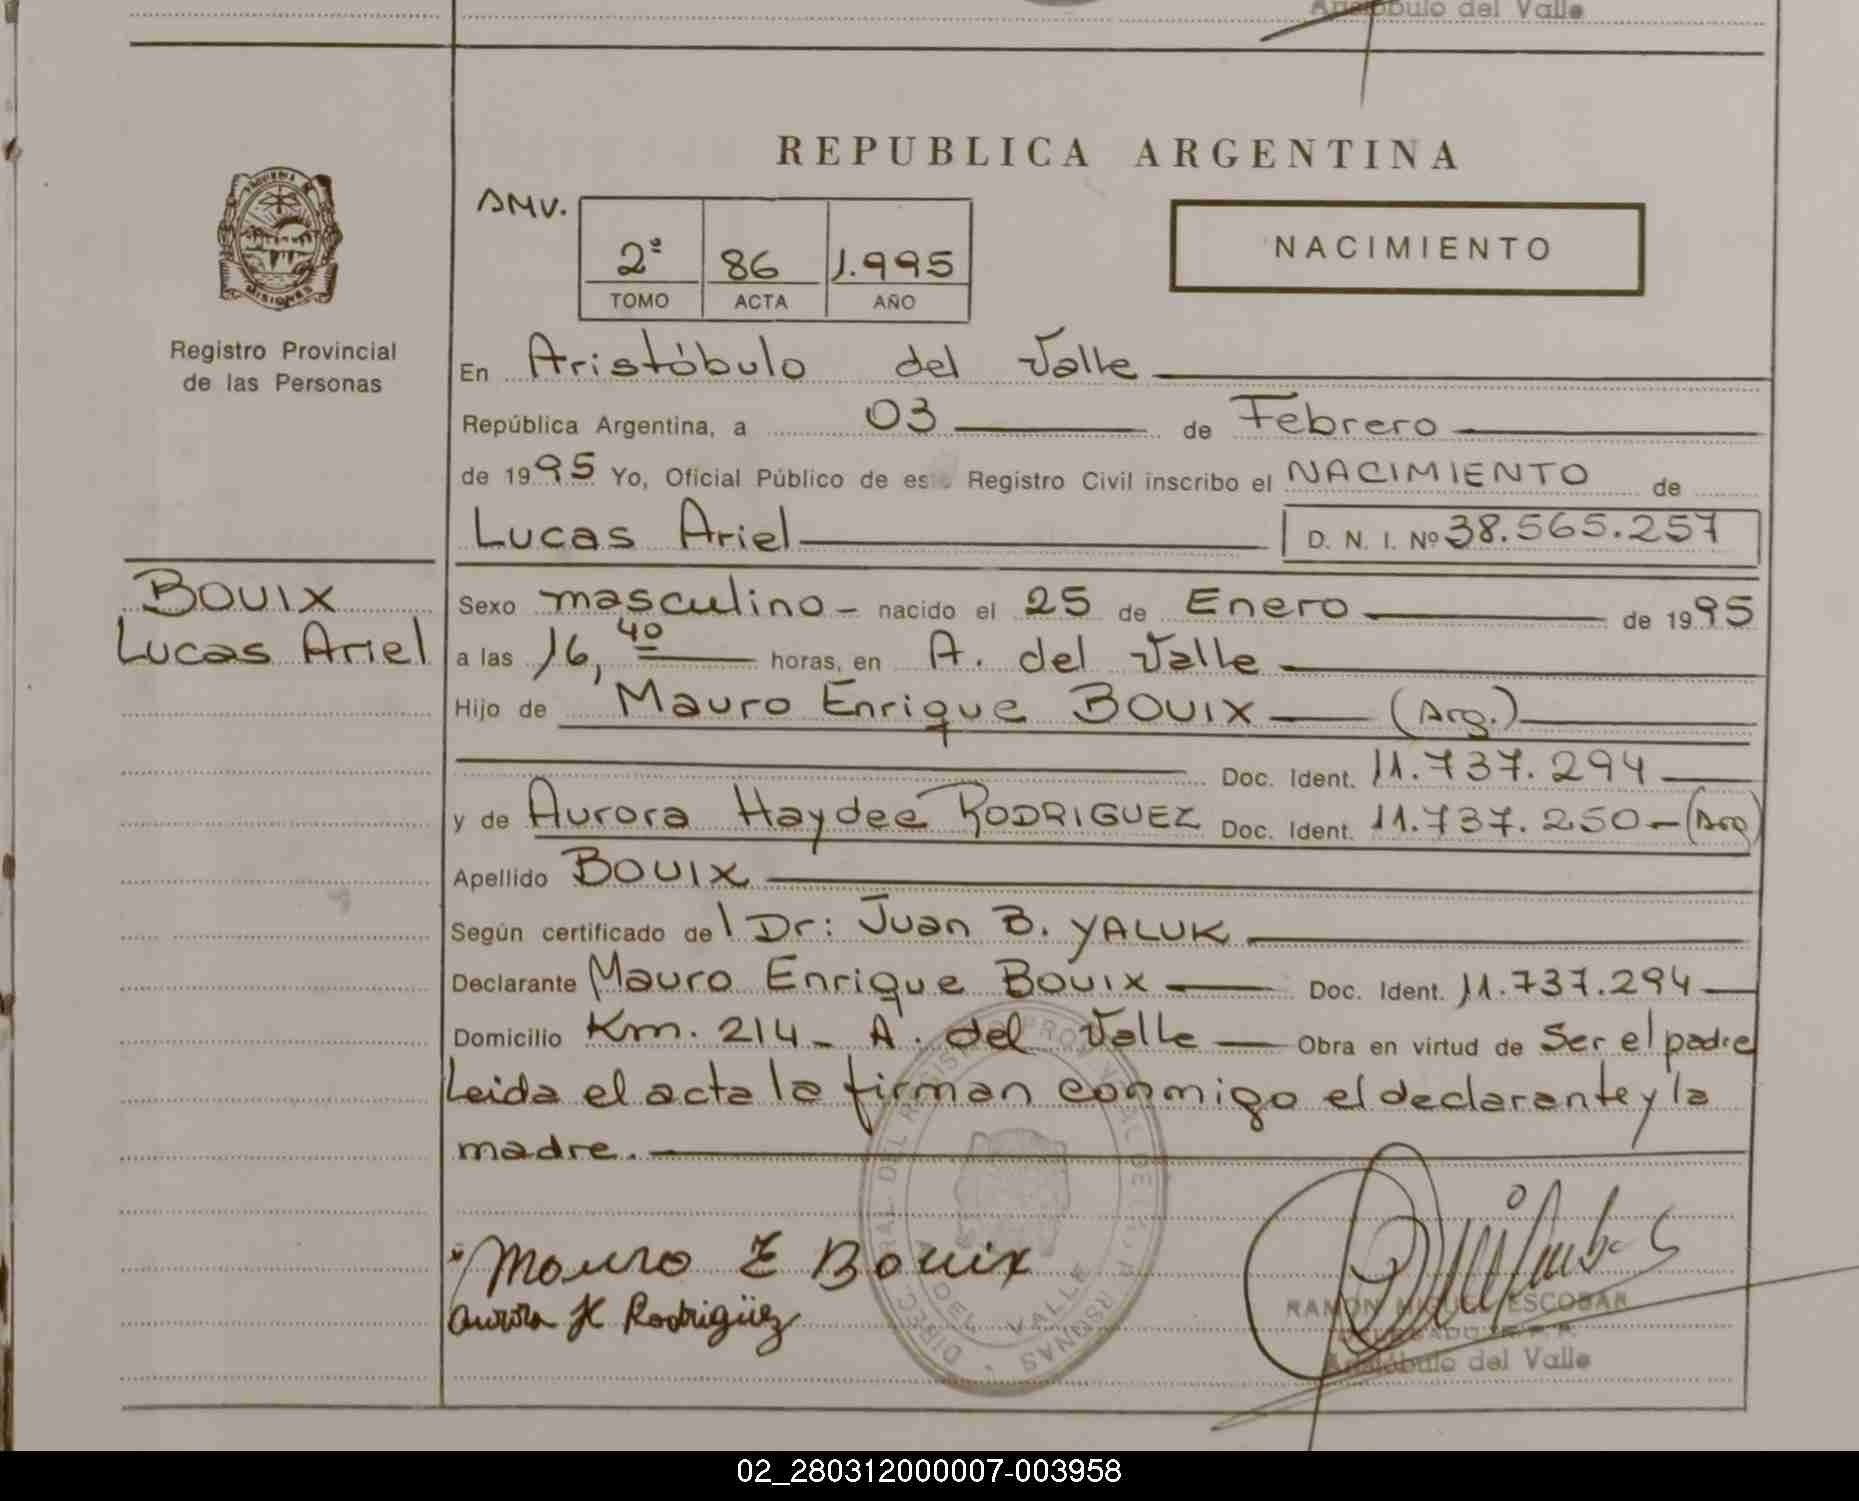 Aristóbulo del Valle
REPUBLICA ARGENTINA
AMV.
2ª 86 1.995
TOMO ACTA AÑO
NACIMIENTO
MISIONES
Registro Provincial
de las Personas
En Aristóbulo del Valle
República Argentina, a 03 de Febrero
de 1995 Yo, Oficial Público de este Registro Civil inscribo el NACIMIENTO de
Lucas Ariel D. N. I. Nº 38.565.257
BOUIX
Lucas Ariel
Sexo masculino - nacido el 25 de Enero de 1995
a las 16,40 horas, en A. del Valle
Hijo de Mauro Enrique BOUIX (Arg.)
Doc. Ident. 11.737.294
y de Aurora Haydee RODRIGUEZ Doc. Ident. 11.737.250 - (Arg)
Apellido BOUIX
Según certificado del Dr: Juan B. YALUK
Declarante Mauro Enrique BOUIX Doc. Ident. 11.737.294
Domicilio Km. 214 - A. del Valle Obra en virtud de Ser el padre
Leida el acta la firman conmigo el declarante y la
madre.
Mauro E Bouix
Aurora H Rodrigüez
A DEL VALLE
RAMON MIGUEL ESCOBAR
DELEGADO R. P. P.
Aristóbulo del Valle
02_280312000007-003958